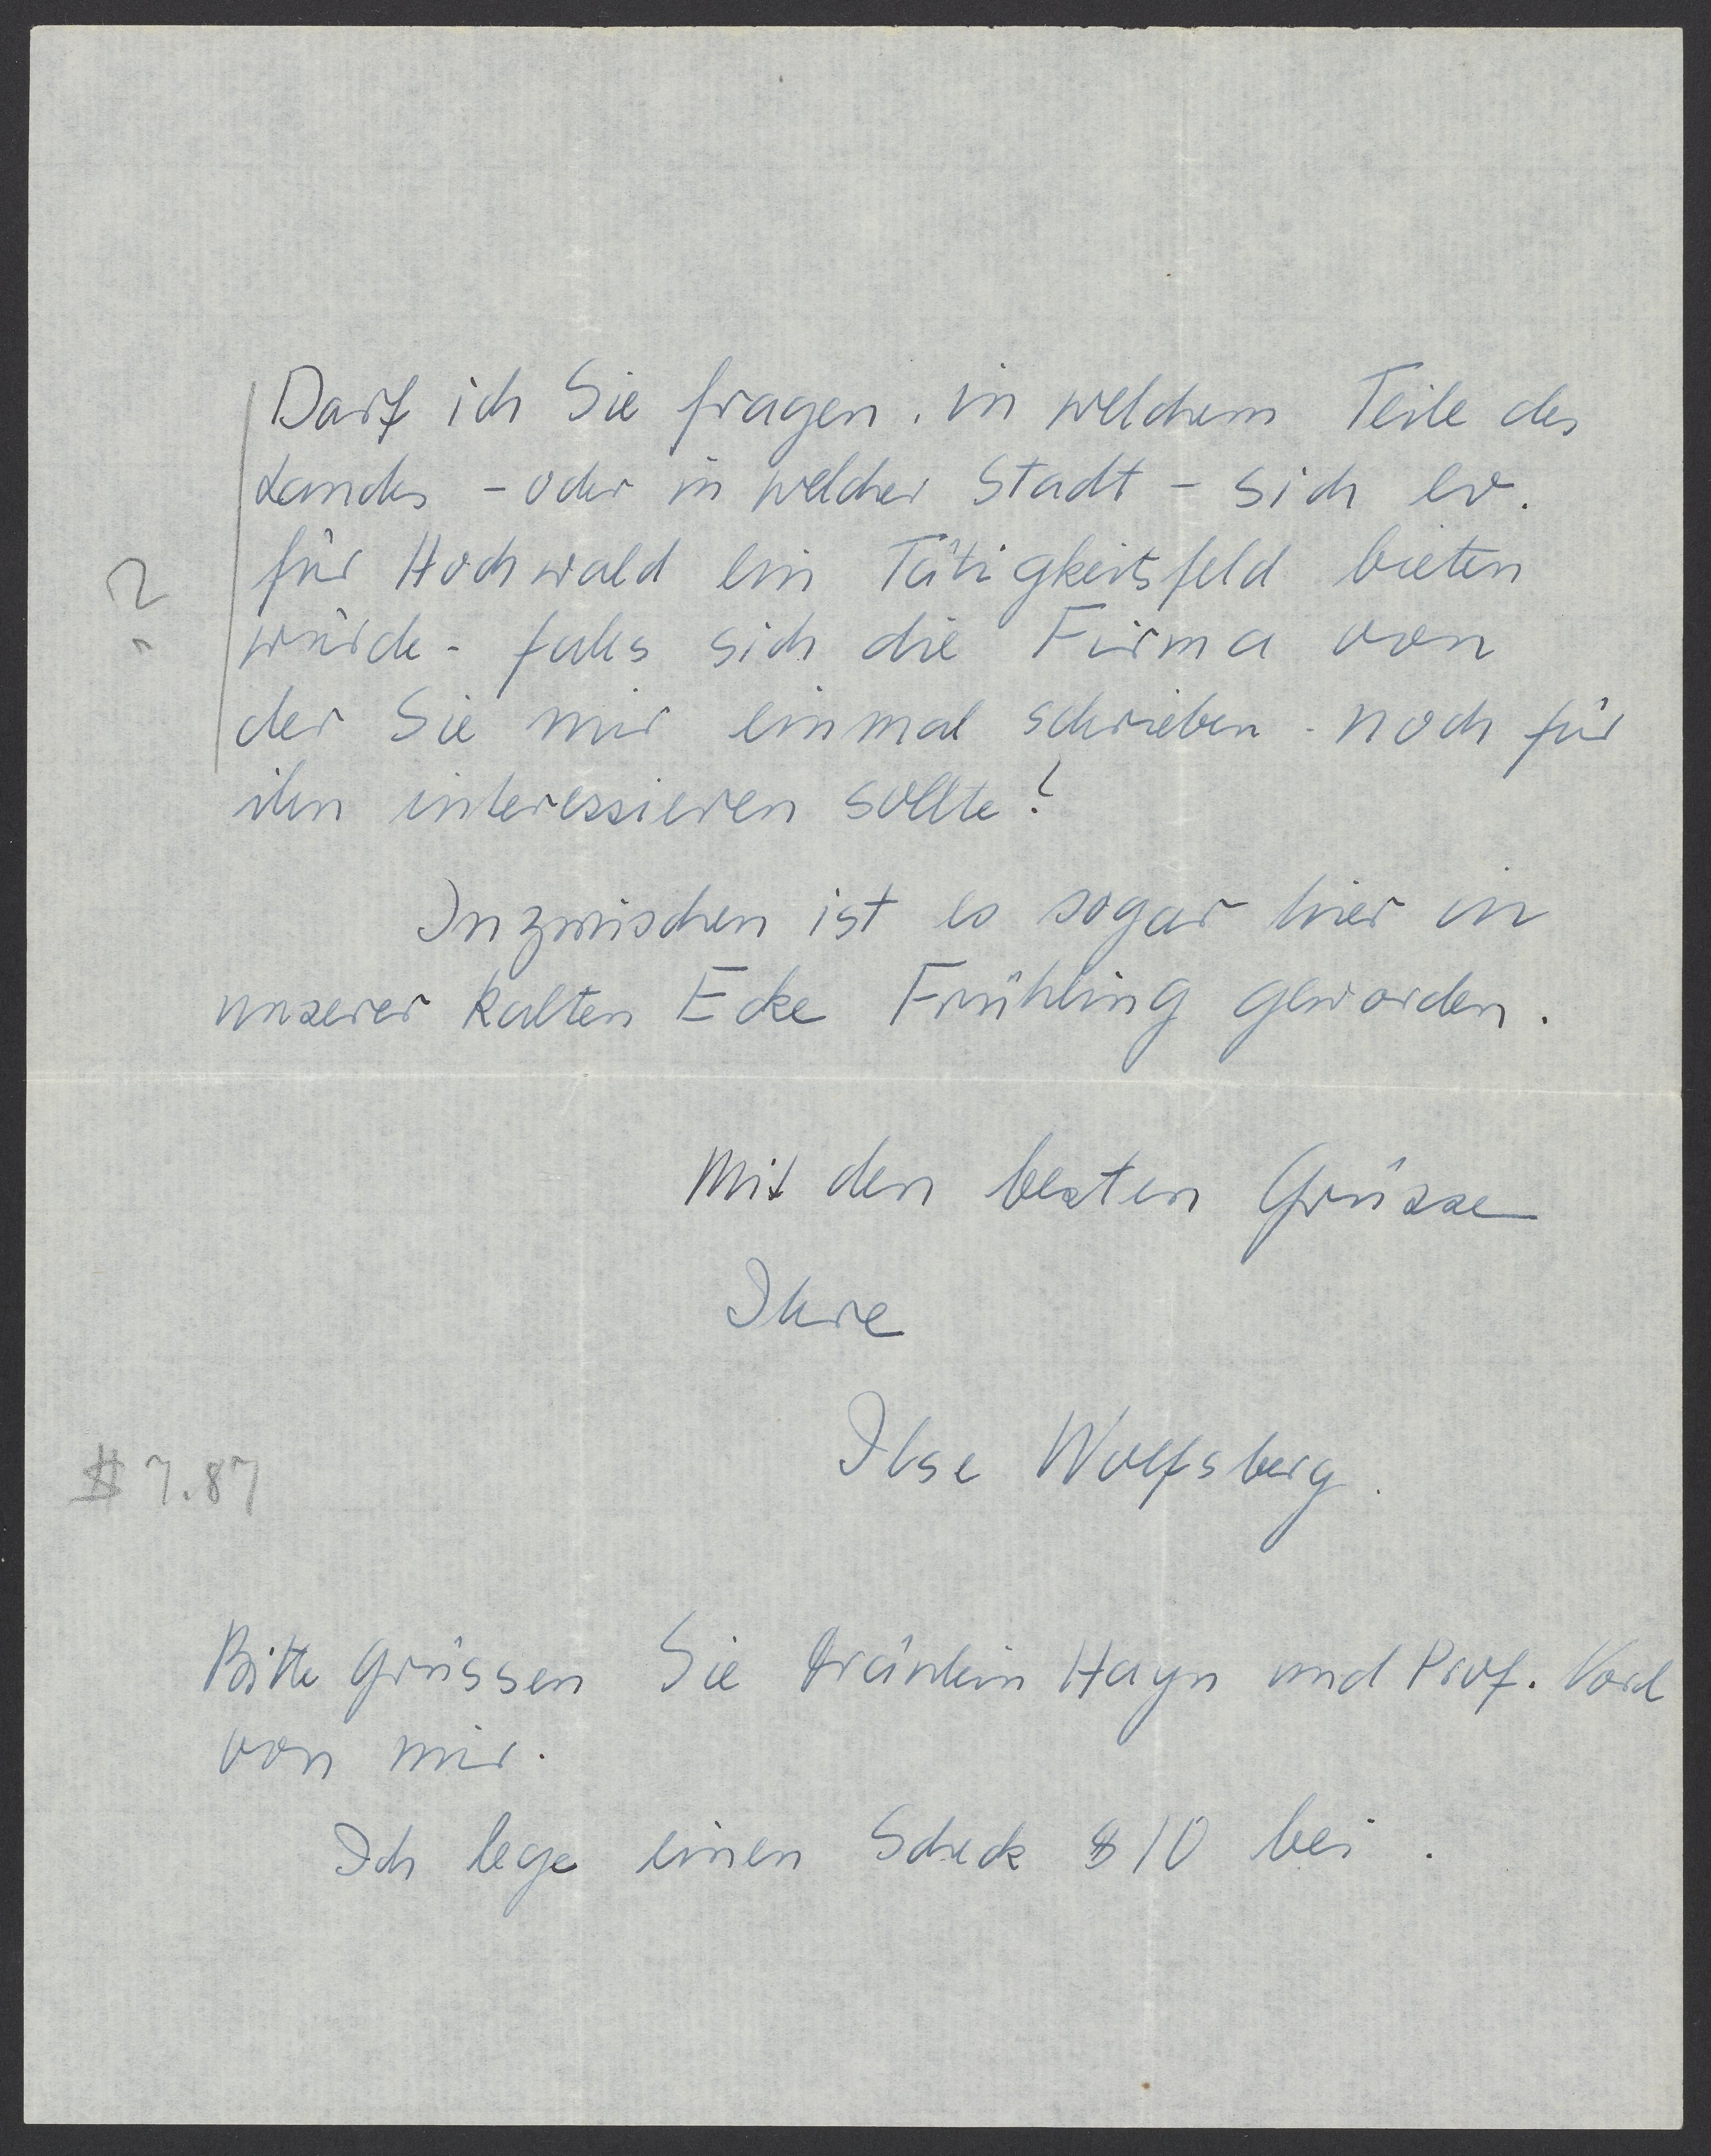 Darf ich Sie fragen, in welchem Teile des
Landes - oder in welcher Stadt - sich ev.
für Hochwald ein Tätigkeitsfeld bieten
?
würde - falls sich die Firma von
der Sie mir einmal schrieben - noch für
ihn interessieren sollte?
Inzwischen ist es sogar hier in
unserer kalten Ecke Frühling geworden.
Mit den besten Grüsse
Ihre
Ilse Wolfsberg.
$ 7.87
Bitte grüssen Sie Fräulein Hayn und Prof.
von mir.
Ich lege einen Scheck $ 10 bei.